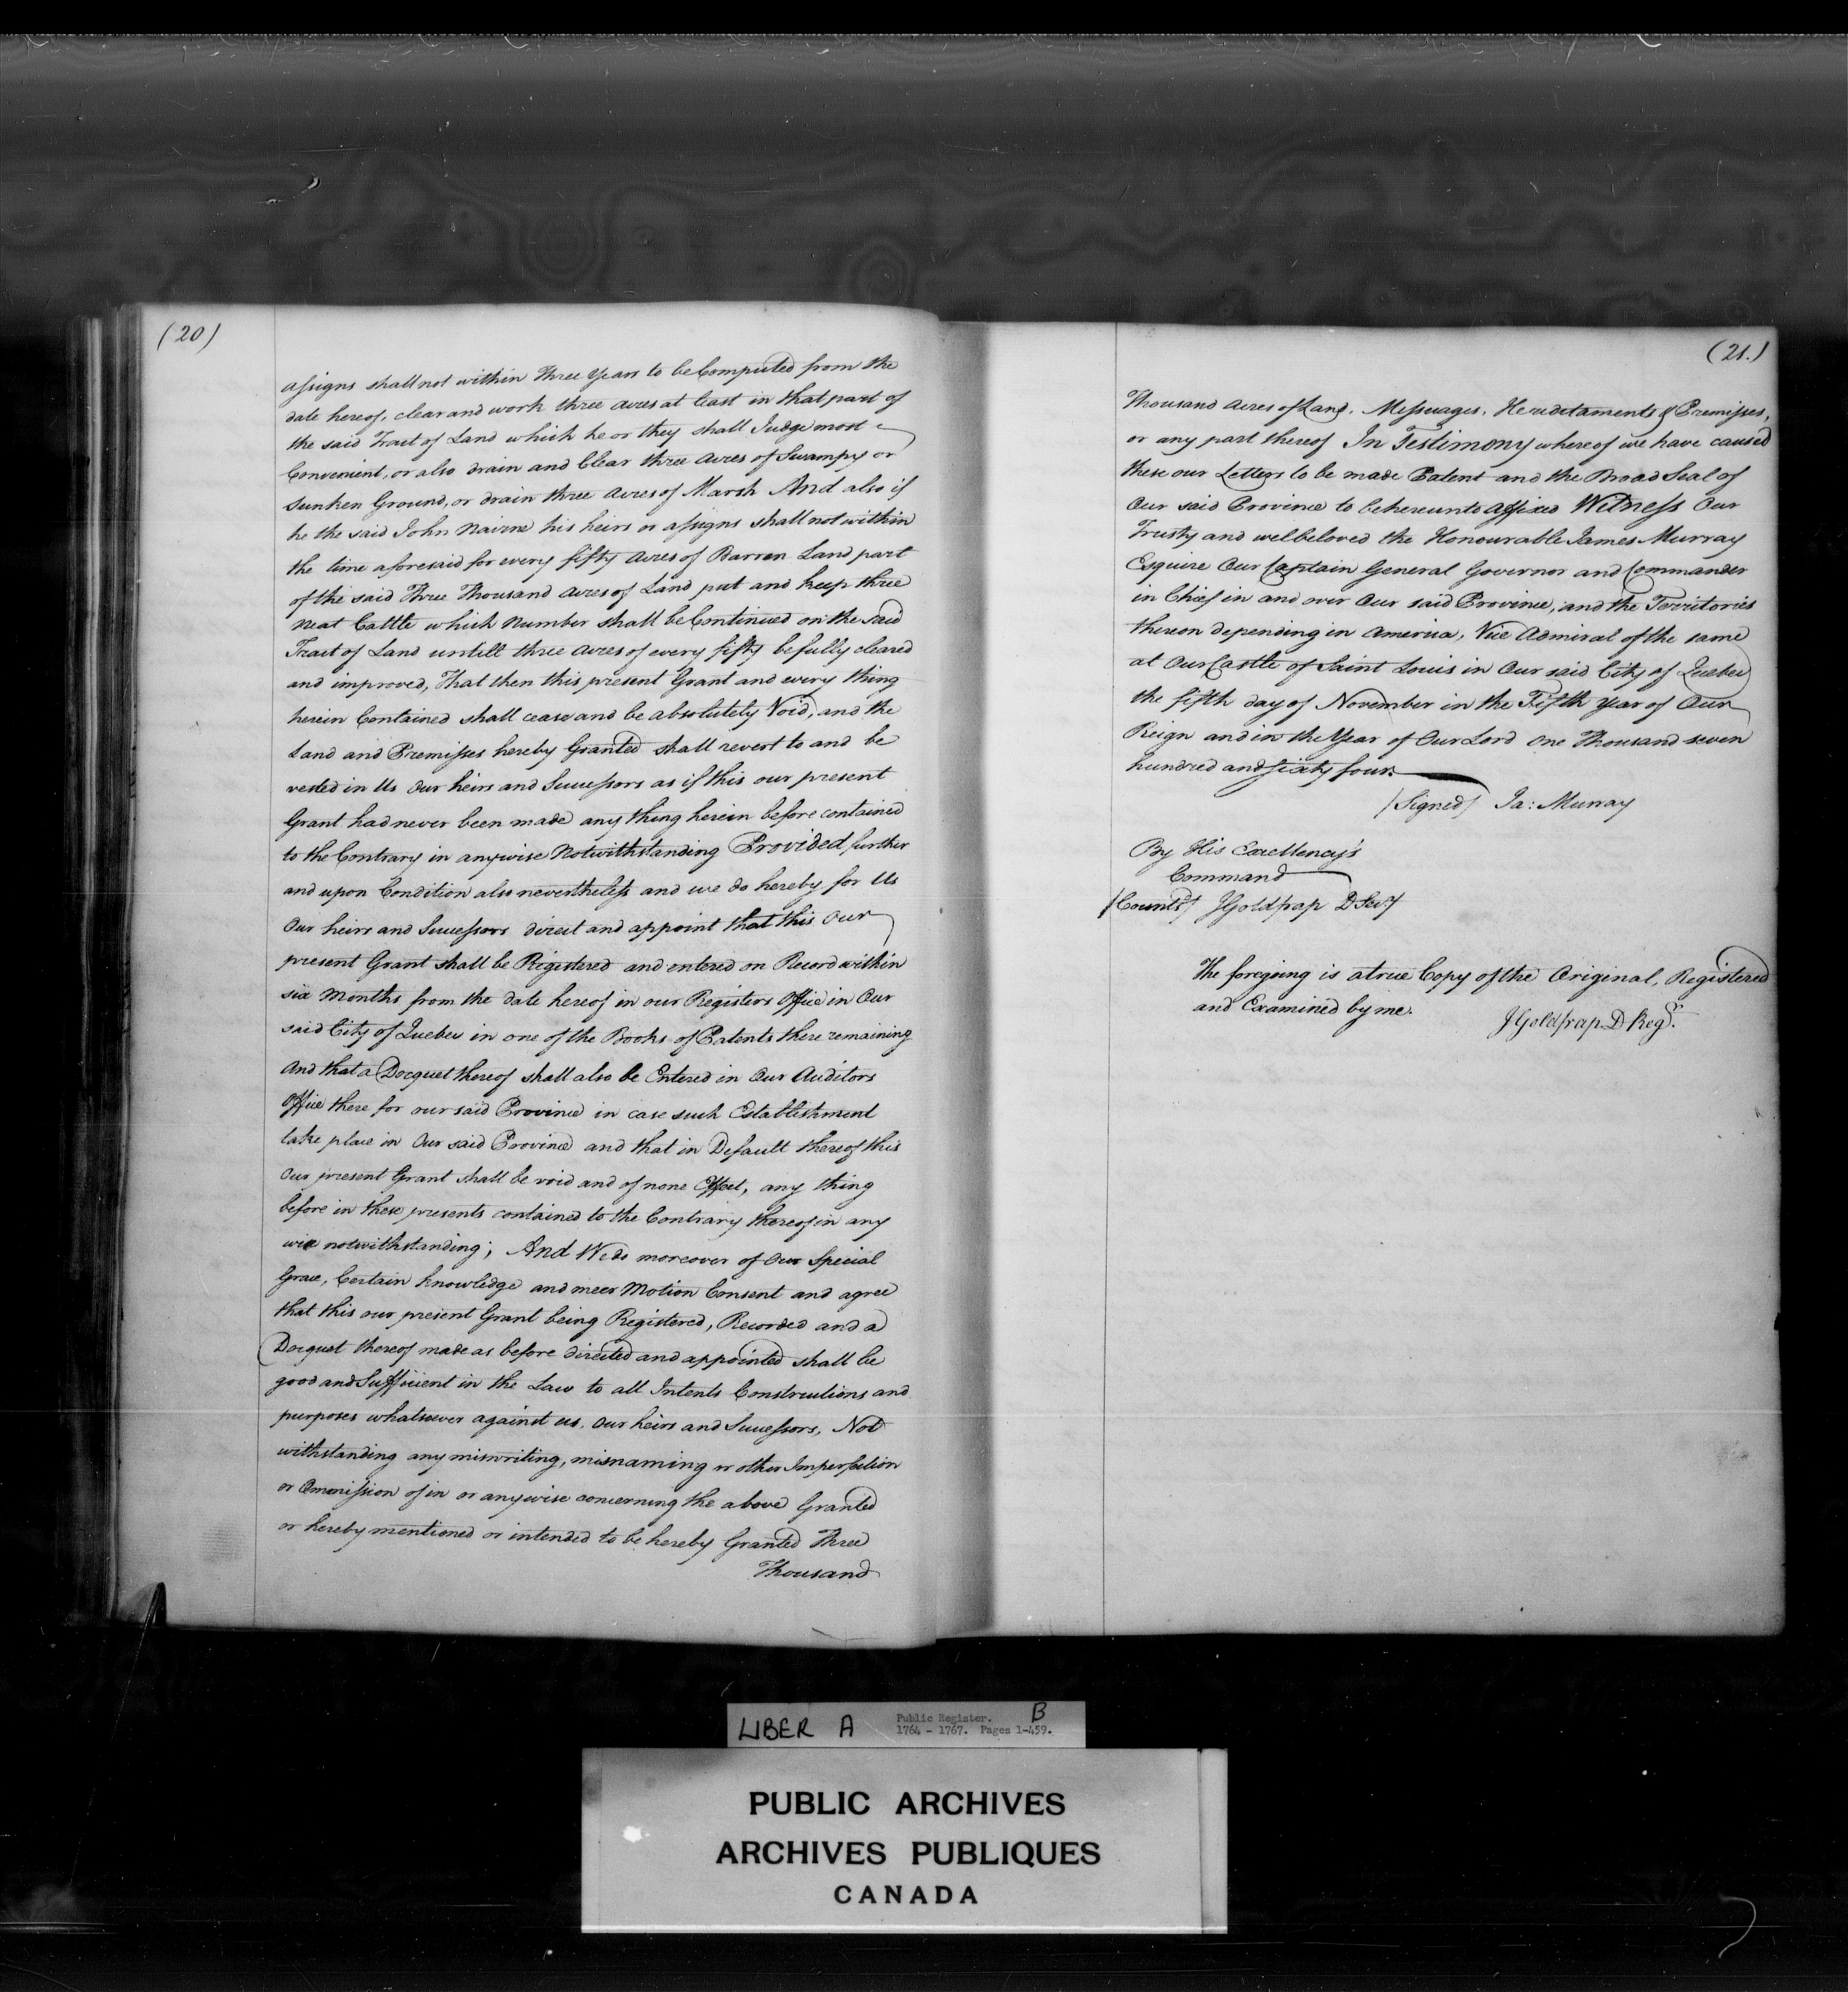 (20)
assigns shall not within Three Years to be Computed from the
date hereof, clear and work three acres at least in that part of
the said Tract of Land which he or they shall Judge most
Convenient, or also drain and Clear three acres of Swampy or
Sunken Ground, or drain three Acres of Marsh And also if
he the said John Nairne his heirs or assigns shall not within
the time aforesaid for every fifty Acres of Barren Land part
of the said Three Thousand Acres of Land put and keep three
Neat Cattle which Number shall be Continued on the said
Tract of Land untill three Acres of every fifty be fully cleared
and improved, That then this present Grant and every thing
herein Contained shall cease and be absolutely Void, and the
Land and Premisses hereby Granted shall revert to and be
vested in Us Our heirs and Successors as if this our present
Grant had never been made any thing herein before contained
to the Contrary in anywise Notwithstanding Provided further
and upon Condition also nevertheless and we do hereby for Us
Our heirs and Successors direct and appoint that this Our
present Grant shall be Registered and entered on Record within
six Months from the date hereof in our Registers Office in Our
said City of Quebec in one of the Books of Patents there remaining
And that a Docquet thereof shall also be Entered in Our Auditors
Office there for our said Province in case such Establishment
take place in Our said Province and that in Default thereof this
Our present Grant shall be void and of none Effect, any thing
before in these presents contained to the Contrary thereof in any
wise notwithstanding; And We do moreover of Our Special
Grace, Certain knowledge and meer Motion Consent and agree
that this our present Grant being Registered, Recorded and a
Docquet thereof made as before directed and appointed shall be
good and Sufficient in the Law to all Intents Constructions and
purposes whatsoever against us, Our heirs and Successors, Not
withstanding any miswriting, misnaming or other Imperfection
or Ommission of in or anywise concerning the above Granted
or hereby mentioned or intended to be hereby Granted Three
Thousand
(21.)
Thousand Acres of Land, Messuages, Hereditaments & Premisses,
or any part thereof In Testimony whereof we have caused
these our Letters to be made Patent and the Broad Seal of
Our said Province to be hereunto affixed Witness Our
Trusty and welbeloved the Honourable James Murray
Esquire Our Captain General Governor and Commander
in Chief in and over Our said Province, and the Territories
thereon depending in America, Vice Admiral of the same
at Our Castle of Saint Louis in Our said City of Quebec
the fifth day of November in the Fifth Year of Our
Reign and in the Year of Our Lord One Thousand seven
hundred and Sixty four.
(Signed) Ja: Murray
By His Excellency's
Command
(Counts.) J Goldfrap D Secy
The foregoing is a true Copy of the Original, Registered
and Examined by me.
J Goldfrap D Regr.
LIBER A
B
Public Register.
1764 - 1767. Pages 1-459.
PUBLIC ARCHIVES
ARCHIVES PUBLIQUES
CANADA